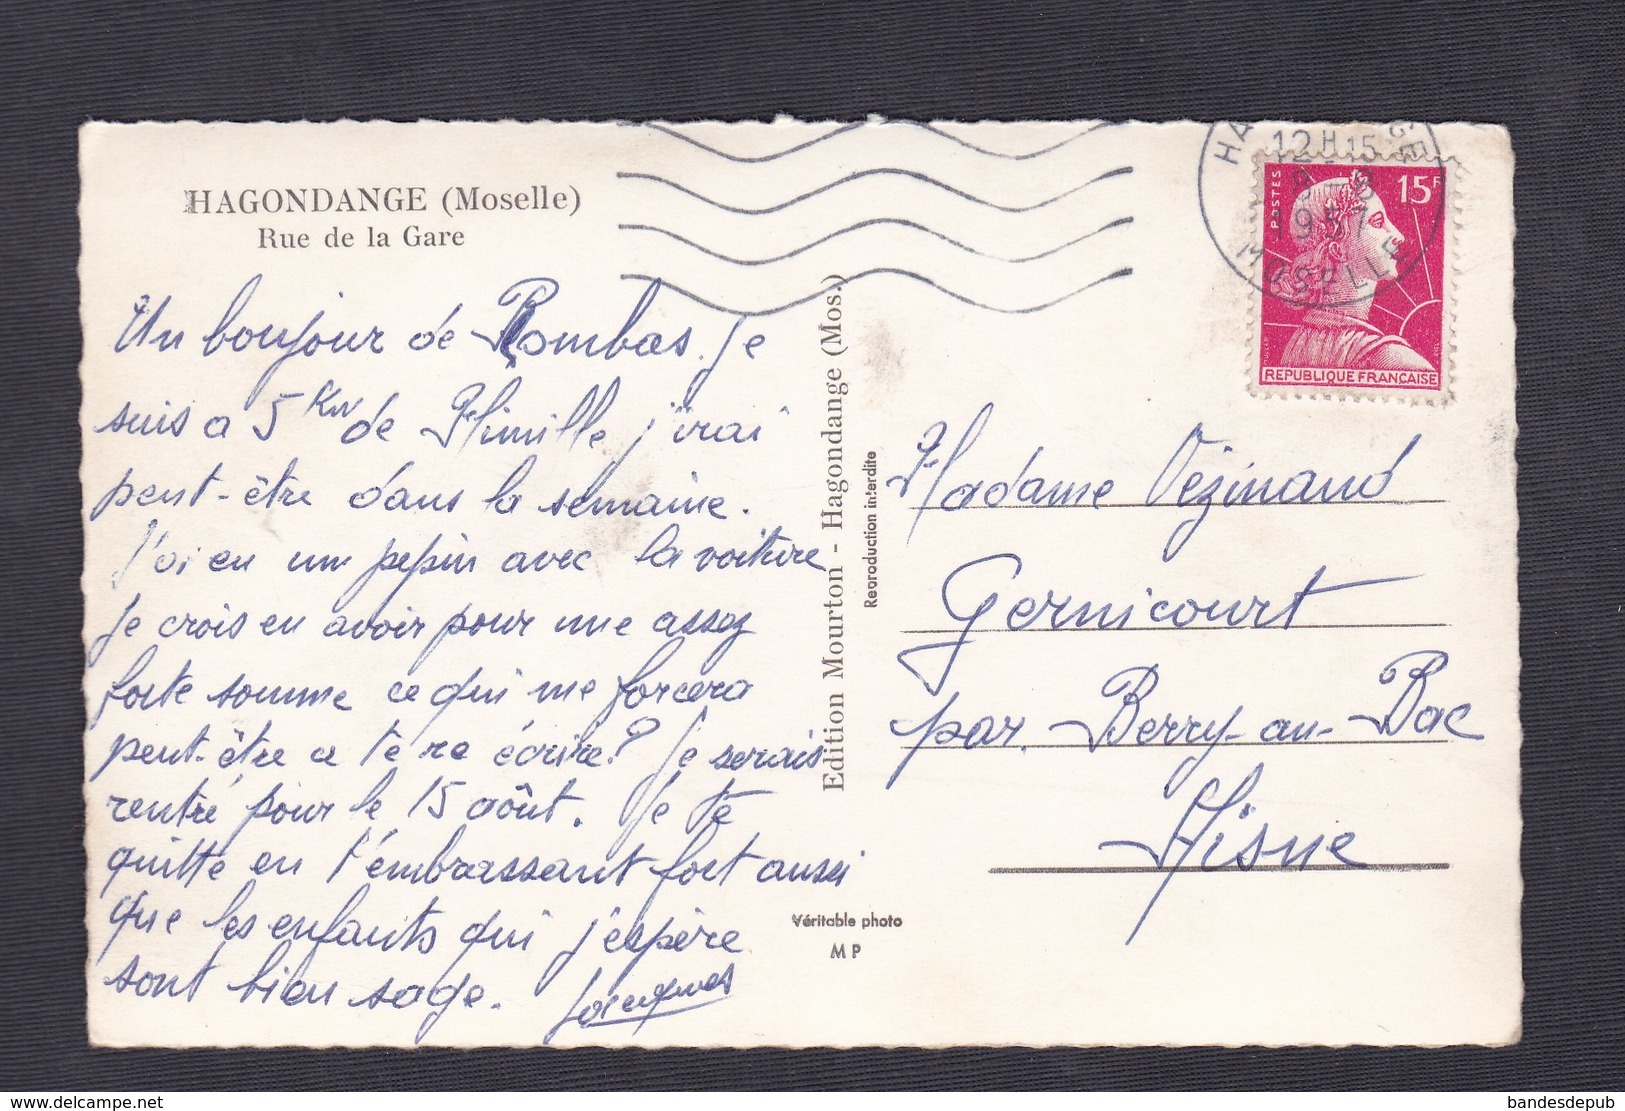 HAGONDANGE (Moselle)
Rue de la Gare
Un bonjour de Rombas. Je
suis a 5 Km de j'irai
peut-être dans la semaine.
J'ai eu un pépin avec la voiture
Je crois en avoir pour une assez
forte somme ce qui me forcera
peut-être a te re écrire? Je serais
rentré pour le 15 août. Je te
quitte en t'embrassant fort aussi
que les enfants qui j'éspère
sont bien sage. Jacques
Edition Mourton - Hagondange (Mos.)
Reproduction interdite
Véritable photo
M P
12 H 15
1957
MOSELLE
POSTES
15F
REPUBLIQUE FRANÇAISE
Madame Vézinaud
Gernicourt
par Berry-au-Bac
Aisne
delcampe.net
bandesdepub